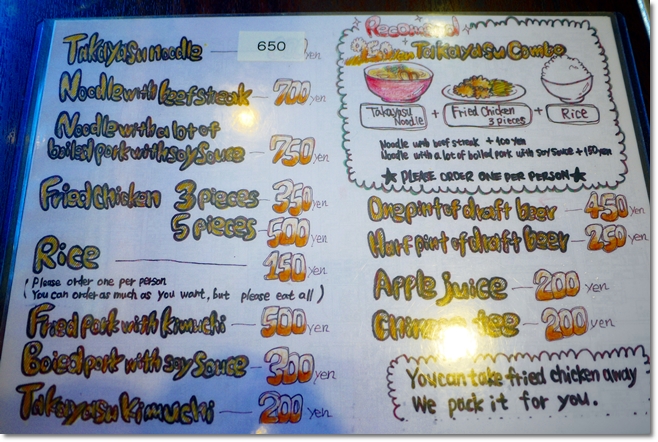 Takayasu noodle — 650 yen
Noodle with beef steak — 700 yen
Noodle with a lot of
boiled pork with soy sauce — 750 yen
Fried chicken 3 pieces — 350 yen
5 pieces — 500 yen
Rice — 150 yen
( Please order one per person
( You can order as much as you want, but please eat all )
Fried pork with kimuchi — 500 yen
Boiled pork with soy sauce — 300 yen
Takayasu kimuchi — 200 yen
Recommend
yen Takayasu Combo
Takayasu Noodle + Fried Chicken 3 pieces + Rice
Noodle with beef steak + 100 yen
Noodle with a lot of boiled pork with soy sauce + 150 yen
★ PLEASE ORDER ONE PER PERSON ★
One pint of draft beer — 450 yen
Half pint of draft beer — 250 yen
Apple juice — 200 yen
tee — 200 yen
You can take fried chicken away
We pack it for you.